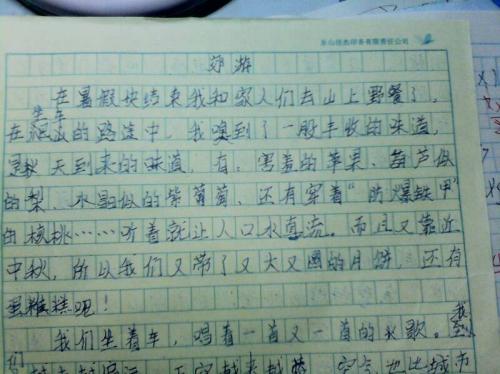 乐山佳杰印务有限责任公司
郊游
在暑假快结束我和家人们去山上野餐了,
坐车
在爬山的路途中,我嗅到了一股丰收的味道,
是秋天到来的味道,有:害羞的苹果、葫芦似
的梨、水晶似的紫葡萄,还有穿着"防爆铁甲"
的核桃……听着就让人口水直流。而且又靠近
中秋,所以我们又带了又大又圆的月饼,还有
蛋糕吧!
我们坐着车,唱着一首又一首的火歌。我
们 空气也比城市